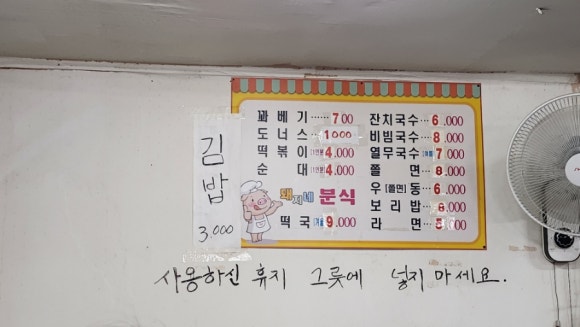 김밥
3.000
꽈베기·····700
도너스···1000
떡볶이[1인분]4.000
순대[1인분]4.000
돼지네 분식
떡국[겨울]9.000
잔치국수··6.000
비빔국수··8.000
열무국수[여름]7.000
쫄면··8.000
우[쫄면]동··6.000
보리밥··8.000
라면··
사용하신 휴지 그릇에 넣지 마세요.